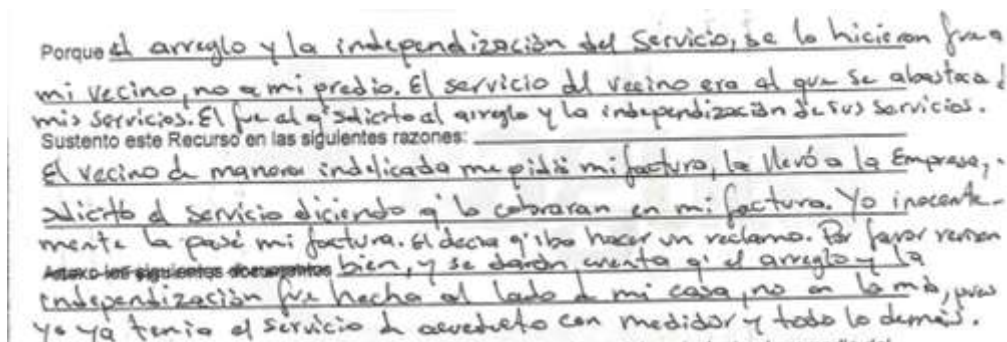 Porque el arreglo y la independización del servicio, se lo hicieron fue a
mi vecino, no a mi predio. El servicio del vecino era el que se abastecia
mis servicios. El fue el q' solicito el arreglo y la independización de sus servicios.
Sustento este Recurso en las siguientes razones:
El vecino de manera indelicada me pidió mi factura, la llevó a la Empresa,
solicitó el servicio diciendo q' lo cobraran en mi factura. Yo inocente-
mente le pasé mi factura. El decia q' iba hacer un reclamo. Por favor revisen
Anexo los siguientes documentos bien, y se darán cuenta q' el arreglo y la
independización fue hecha al lado de mi casa, no en la mia, pues
yo ya tenia el servicio de acueducto con medidor y todo lo demás.